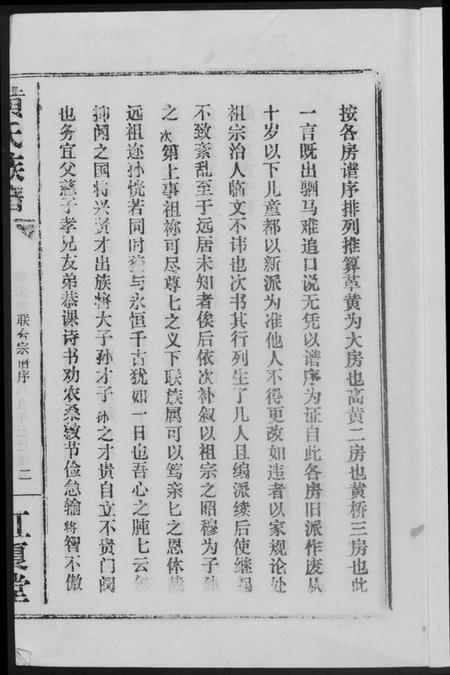 按各房谱序排列推算革黄为大房也高黄二房也黄桥三房也此
一言既出驷马难追口说无凭以谱序为证自此各房旧派作废从
十岁以下儿童都以新派为准他人不得更改如违者以家规论处
祖宗治人临文不讳也次书其行列生了几人且编派续后使继
不致紊乱至于远居未知者俟后依次补叙以祖宗之昭穆为子孙
之次第上事祖祢可尽尊七之义下联族属可以笃亲匕之恩休
远祖迩孙恍若同时 与永恒千古犹如一日也吾心之肫七云
抑闻之国将兴贤才出族将大子孙才子孙之才贵自立不贵门阀
也务宜父慈子孝兄友弟恭课诗书劝农桑敦节俭急输将智不傲
黄氏族谱
联各宗谱序
二
江夏堂